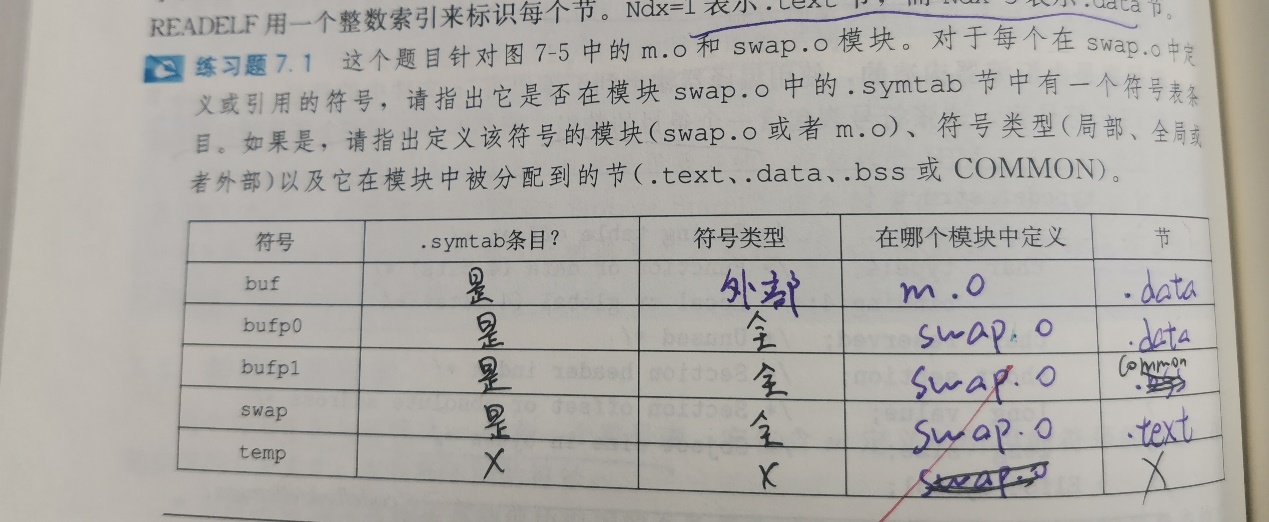 READELF 用一个整数索引来标识每个节。Ndx=1 表示.text 节，而 Ndx=3 表示.data节。
练习题 7.1 这个题目针对图 7-5 中的 m.o 和 swap.o 模块。对于每个在 swap.o 中定
义或引用的符号，请指出它是否在模块 swap.o 中的 .symtab 节中有一个符号表条
目。如果是，请指出定义该符号的模块(swap.o 或者 m.o)、符号类型(局部、全局或
者外部)以及它在模块中被分配到的节(.text、.data、.bss 或 COMMON)。
符号 .symtab条目? 符号类型 在哪个模块中定义 节
buf 是 外部 m.o .data
bufp0 是 全 swap.o .data
bufp1 是 全 swap.o Common
swap 是 全 swap.o .text
temp X X X